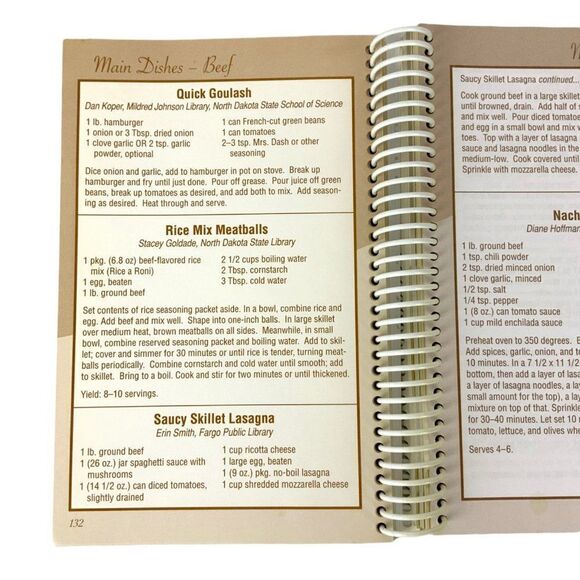 Main Dishes – Beef
Quick Goulash
Dan Koper, Mildred Johnson Library, North Dakota State School of Science
1 lb. hamburger
1 onion or 3 Tbsp. dried onion
1 clove garlic OR 2 tsp. garlic
powder, optional
1 can French-cut green beans
1 can tomatoes
2–3 tsp. Mrs. Dash or other
seasoning
Dice onion and garlic, add to hamburger in pot on stove. Break up
hamburger and fry until just done. Pour off grease. Pour juice off green
beans, break up tomatoes as desired, and add both to mix. Add season-
ing as desired. Heat through and serve.
Rice Mix Meatballs
Stacey Goldade, North Dakota State Library
1 pkg. (6.8 oz) beef-flavored rice
mix (Rice a Roni)
1 egg, beaten
1 lb. ground beef
2 1/2 cups boiling water
2 Tbsp. cornstarch
3 Tbsp. cold water
Set contents of rice seasoning packet aside. In a bowl, combine rice and
egg. Add beef and mix well. Shape into one-inch balls. In large skillet
over medium heat, brown meatballs on all sides. Meanwhile, in small
bowl, combine reserved seasoning packet and boiling water. Add to skil-
let; cover and simmer for 30 minutes or until rice is tender, turning meat-
balls periodically. Combine cornstarch and cold water until smooth; add
to skillet. Bring to a boil. Cook and stir for two minutes or until thickened.
Yield: 8–10 servings.
Saucy Skillet Lasagna
Erin Smith, Fargo Public Library
1 lb. ground beef
1 (26 oz.) jar spaghetti sauce with
mushrooms
1 (14 1/2 oz.) can diced tomatoes,
slightly drained
1 cup ricotta cheese
1 large egg, beaten
1 (9 oz.) pkg. no-boil lasagna
1 cup shredded mozzarella cheese
132
Saucy Skillet Lasagna continued...
Cook ground beef in a large skillet
until browned, drain. Add half of
and mix well. Pour diced tomatoes
and egg in a small bowl and mix
toes. Top with a layer of lasagna
sauce and lasagna noodles in the
medium-low. Cook covered until
Sprinkle with mozzarella cheese.
Nach
Diane Hoffman
1 lb. ground beef
1 tsp. chili powder
2 tsp. dried minced onion
1 clove garlic, minced
1/2 tsp. salt
1/4 tsp. pepper
1 (8 oz.) can tomato sauce
1 cup mild enchilada sauce
Preheat oven to 350 degrees.
Add spices, garlic, onion, and to
10 minutes. In a 7 1/2 x 11 1/2
bottom, then add a layer of lasa
a layer of lasagna noodles, a lay
small amount for the top), a lay
mixture on top of that. Sprinkle
for 30–40 minutes. Let set 10
tomato, lettuce, and olives whe
Serves 4–6.